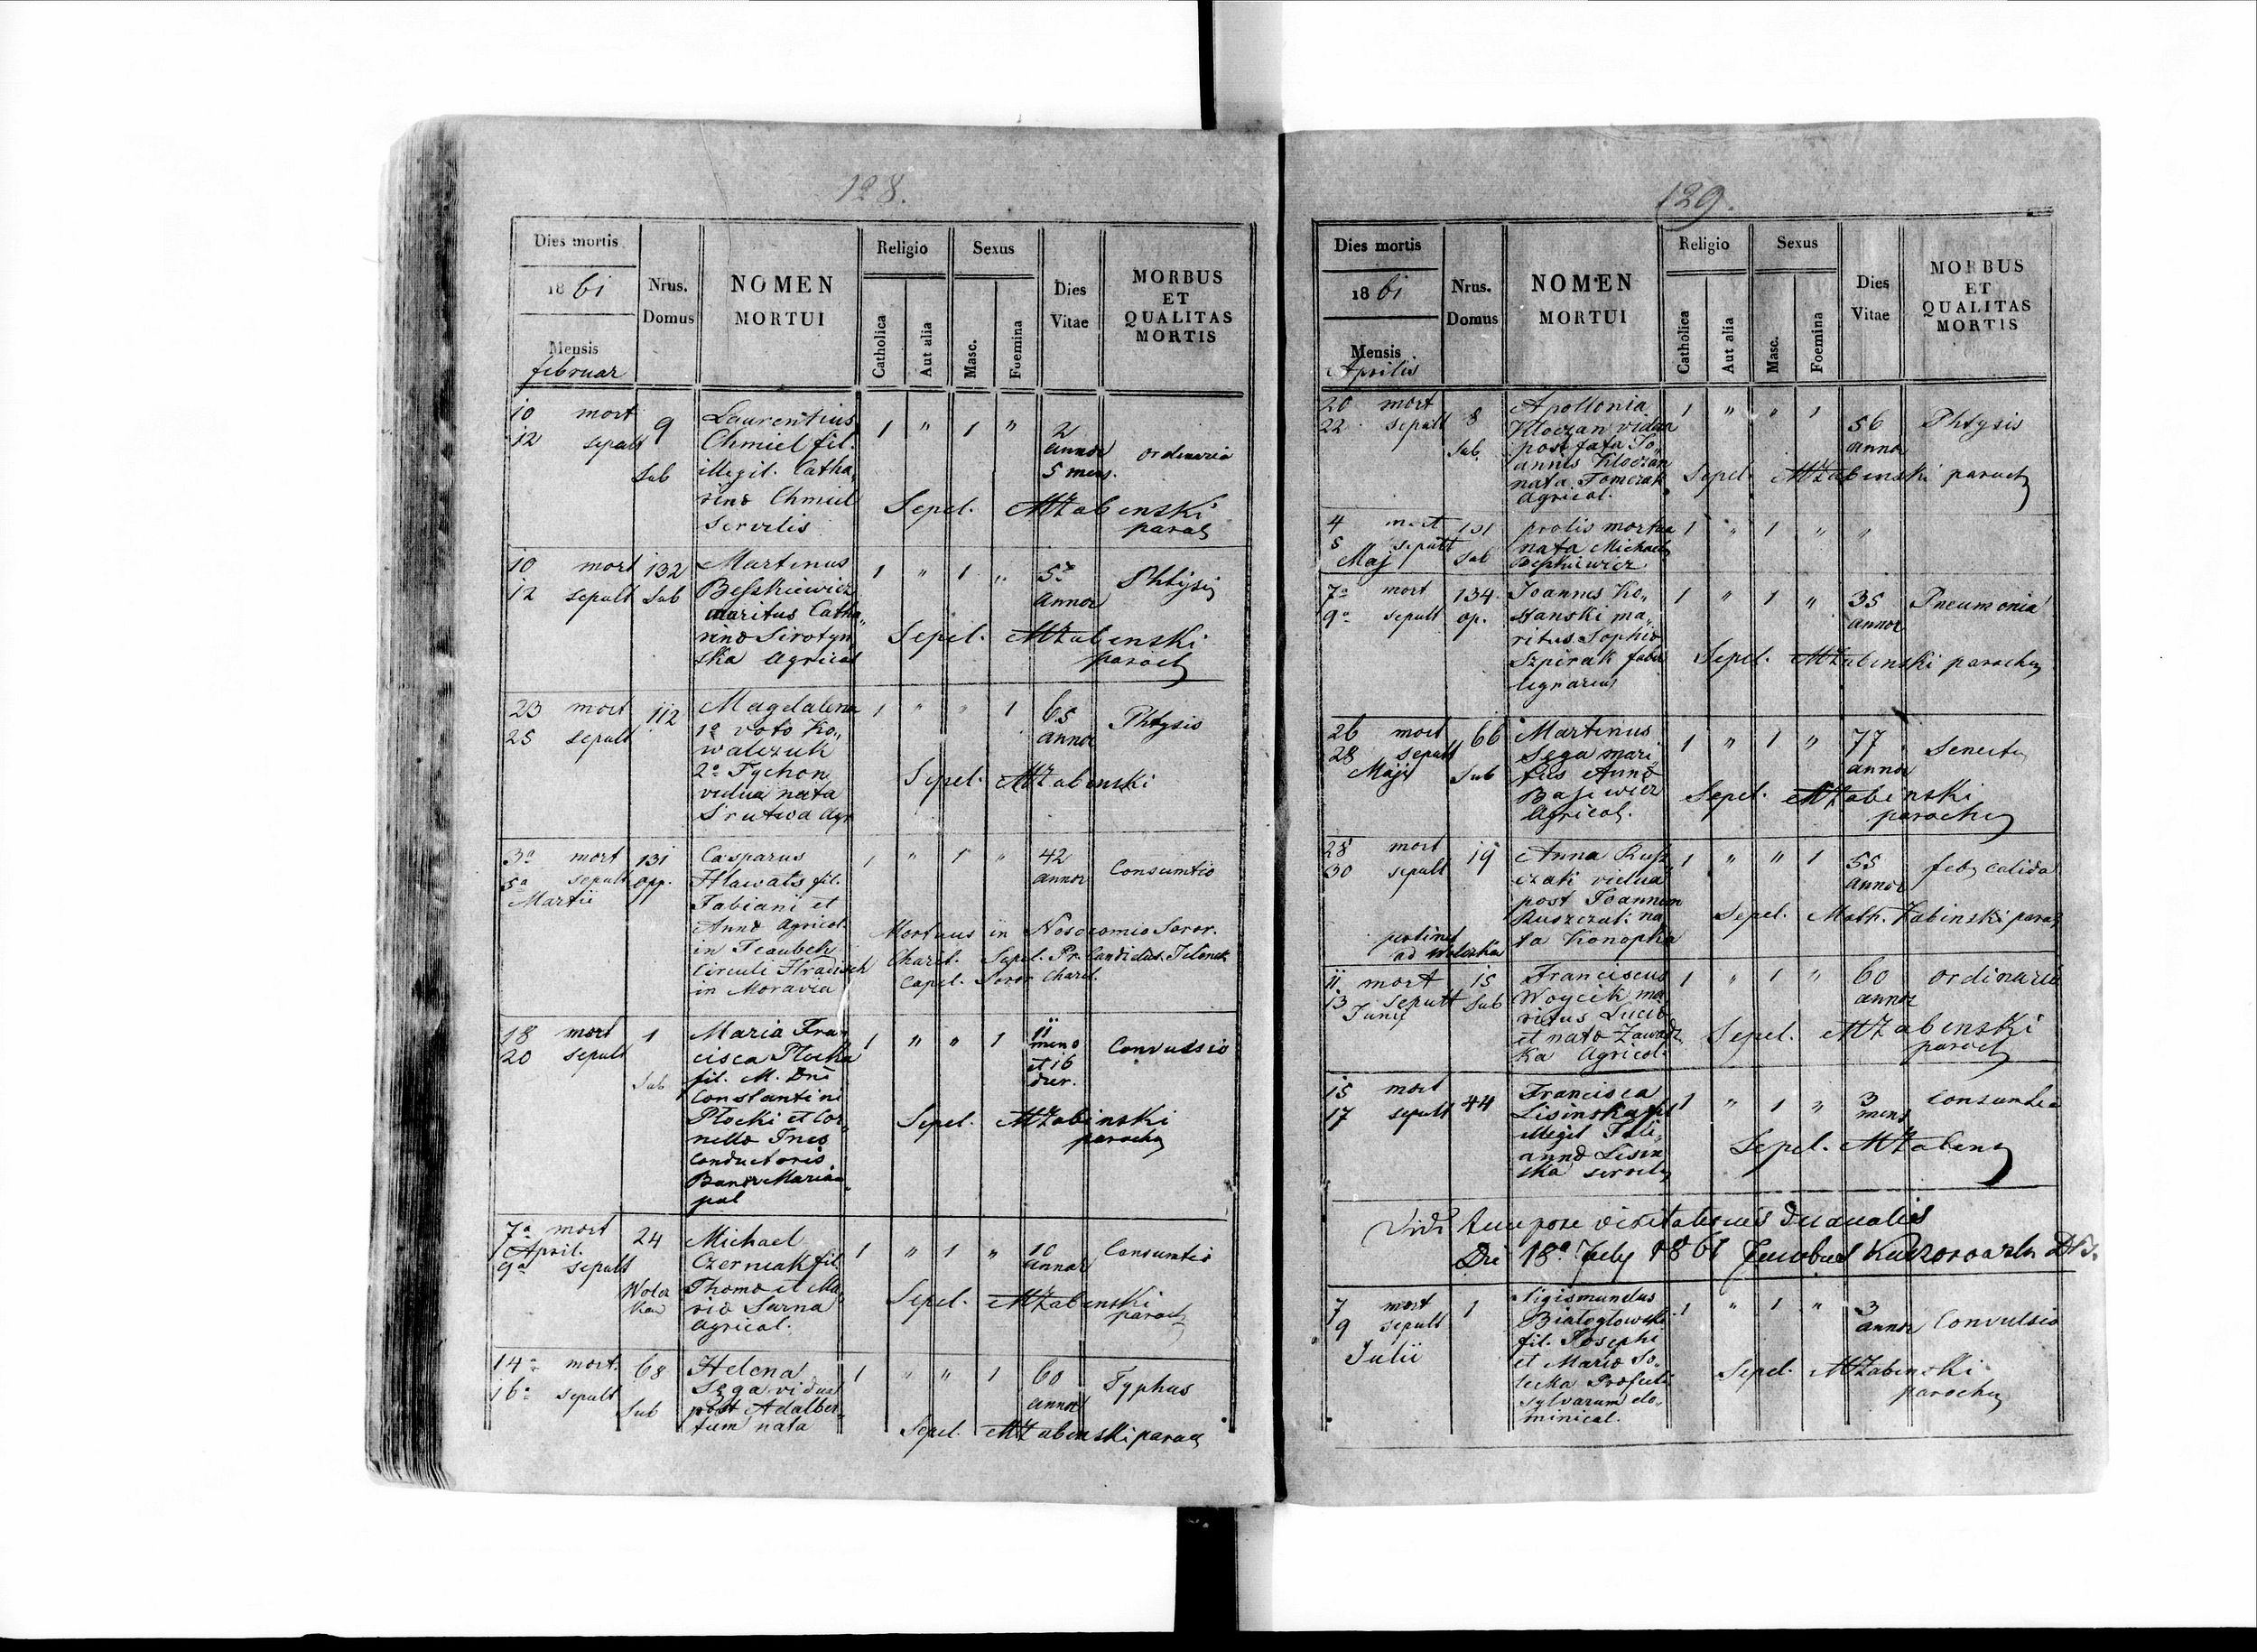 128.
Dies mortis
1861
Mensis
februar
Nrus.
Domus
NOMEN
MORTUI
Religio
Catholica
Aut alia
Sexus
Masc.
Foemina
Dies
Vitae
MORBUS
ET
QUALITAS
MORTIS
10 mort
12 sepult
9
Sub
Laurentius
Chmiel fil.
illegit. Catha„
rinae Chmiel
servilis
1 " 1 "
2
annor
5 mens.
ordinaria
Sepel. MZabenski
paroch
10 mort
12 sepult
132
Sub
Martinus
Besskiewicz
maritus Catha„
rinae Sirotyn
ska agricol
1 " 1 "
annor
Phtysis
Sepel. MZabenski
paroch
23 mort
25 sepult
112
Magdalena
1o voto Ko„
walczuk
2o Tychon
vidua nata
Srutwa agr
1 " " 1
65
annor
Phtysis
Sepel. MZabenski
3a mort
5a sepult
Martii
131
opp.
Casparus
Hlawats fil.
Fabiani et
Annae agricol.
in
Circuli Hradisch
in Moravia
1 " 1 "
42
annor
Consumtio
Mortuus in Nosocomio Soror.
Charit. Sepel. Pr. Candidus
Capel. Soror Charit.
18 mort
20 sepult
1
Sub
Maria Fran
cisca Płocka
fil. M. Dni
Constantini
Płocki et Cor„
nellae
Conductoris
Bonor Mariam„
pol
1 " " 1
11
mens
et 16
dier.
Convulsio
Sepel. MZabinski
parochus
7a mort
April.
9a sepult
24
Michael
Czerniak fil
Thomae et Ma„
riae Sarna
agricol.
1 " 1 "
10
annor
Consumtio
Sepel. MZabenski
paroch
14a mort.
16a sepult
68
Sub
Helena
Sęga vidua
post Adalber„
tum nata
1 " " 1
60
annor
Typhus
Sepel. MZabenski paroch
129.
Dies mortis
1861
Mensis
Aprilis
Nrus.
Domus
NOMEN
MORTUI
Religio
Catholica
Aut alia
Sexus
Masc.
Foemina
Dies
Vitae
MORBUS
ET
QUALITAS
MORTIS
20 mort
22 sepult
8
Sub.
Apollonia
Kloczan vidua
post fata Jo„
annis Kloczan
nata Tomczak
agricol.
1 " " 1
56
annor
Phtysis
Sepel. MZabenski paroch
4 mort
5 sepult
Maj
131
Sub
prolis mortua
nata Michael
Besskiewicz
1 " 1 " "
7a mort
9a sepult
134.
op.
Joannes Ko„
stanski ma„
ritus Sophiae
Szpirak faber
lignarius
1 " 1 "
35
annor
Pneumonia
Sepel. MZabenski parochus
26 mort
28 sepult
Maji
66
Sub
Martinus
Sęga mari
tus Annae
Basiewicz
agricol.
1 " 1 "
77
annor
Senectus
Sepel. MZabenski
parochus
28 mort
30 sepult
pertinet
ad Woloska
19
Anna Rusz
czak vidua
post Joannem
Ruszczak na
ta Konopka
1 " " 1
55
annor
febr calida
Sepel. Math. Zabinski paroch
11 mort
13 sepult
Junij
15
Sub
Franciscus
Woycik ma„
ritus Luciae
et natae Zawadz
ka agricol.
1 " 1 "
60
annor
ordinaria
Sepel. MZabenski
paroch
15 mort
17 sepult
44
Francisca
Lisinska fil
illegit Juli„
annae Lisin
ska servilis
1 " 1 "
3
mens
Consumtio
Sepel. MZabens
Vidi tempore visitationis decanalis
Die 18a July 1861 Jacobus
7 mort
9 sepult
Julii
1
Sigismundus
Białogłowski
fil. Josephi
et Mariae So„
lecka Praefecti
sylvarum do„
minical.
1 " 1 "
3
annor
Convulsio
Sepel. MZabenski
parochus